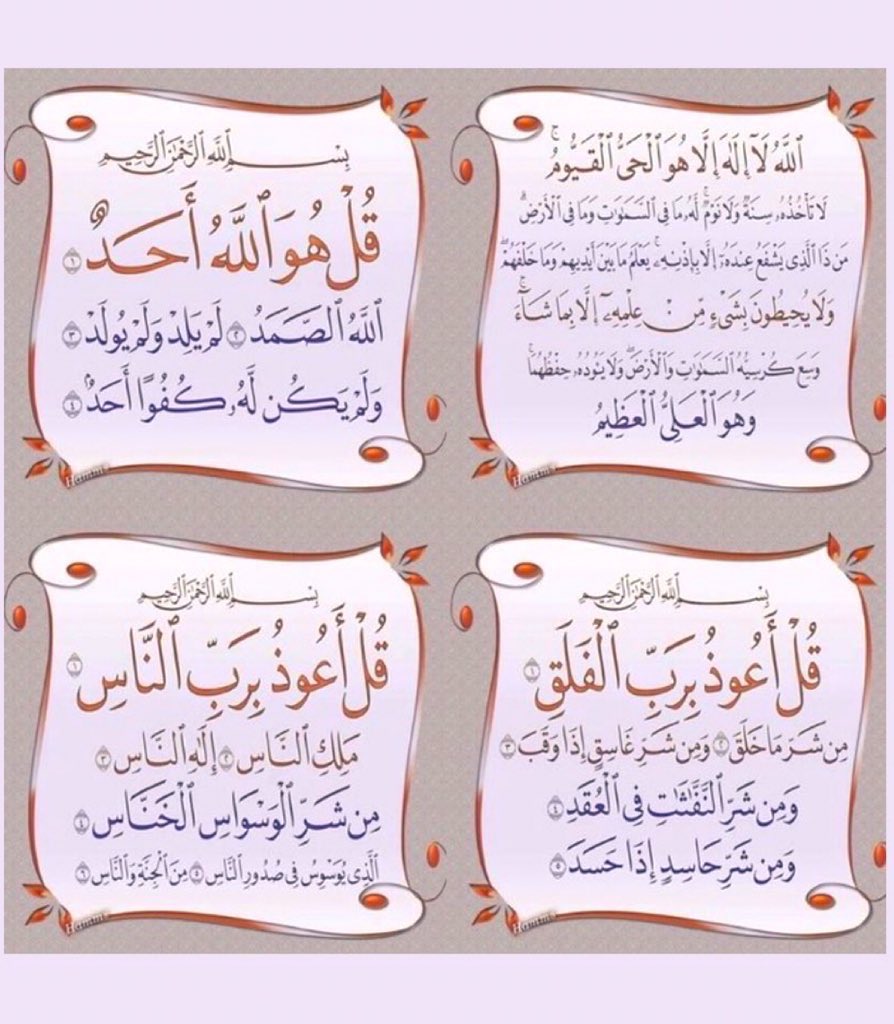 ٱللَّهُ لَآ إِلَٰهَ إِلَّا هُوَ ٱلْحَىُّ ٱلْقَيُّومُ ۚ
لَا تَأْخُذُهُۥ سِنَةٌ وَلَا نَوْمٌ ۚ لَّهُۥ مَا فِى ٱلسَّمَٰوَٰتِ وَمَا فِى ٱلْأَرْضِ ۗ
مَن ذَا ٱلَّذِى يَشْفَعُ عِندَهُۥٓ إِلَّا بِإِذْنِهِۦ ۚ يَعْلَمُ مَا بَيْنَ أَيْدِيهِمْ وَمَا خَلْفَهُمْ ۖ
وَلَا يُحِيطُونَ بِشَىْءٍ مِّنْ عِلْمِهِۦٓ إِلَّا بِمَا شَآءَ ۚ
وَسِعَ كُرْسِيُّهُ ٱلسَّمَٰوَٰتِ وَٱلْأَرْضَ ۖ وَلَا يَـُٔودُهُۥ حِفْظُهُمَا ۚ
وَهُوَ ٱلْعَلِىُّ ٱلْعَظِيمُ
بِسْمِ ٱللَّهِ ٱلرَّحْمَٰنِ ٱلرَّحِيمِ
قُلْ هُوَ ٱللَّهُ أَحَدٌ ١
ٱللَّهُ ٱلصَّمَدُ ٢ لَمْ يَلِدْ وَلَمْ يُولَدْ ٣
وَلَمْ يَكُن لَّهُۥ كُفُوًا أَحَدٌۢ ٤
بِسْمِ ٱللَّهِ ٱلرَّحْمَٰنِ ٱلرَّحِيمِ
قُلْ أَعُوذُ بِرَبِّ ٱلْفَلَقِ ١
مِن شَرِّ مَا خَلَقَ ٢ وَمِن شَرِّ غَاسِقٍ إِذَا وَقَبَ ٣
وَمِن شَرِّ ٱلنَّفَّٰثَٰتِ فِى ٱلْعُقَدِ ٤
وَمِن شَرِّ حَاسِدٍ إِذَا حَسَدَ ٥
بِسْمِ ٱللَّهِ ٱلرَّحْمَٰنِ ٱلرَّحِيمِ
قُلْ أَعُوذُ بِرَبِّ ٱلنَّاسِ ١
مَلِكِ ٱلنَّاسِ ٢ إِلَٰهِ ٱلنَّاسِ ٣
مِن شَرِّ ٱلْوَسْوَاسِ ٱلْخَنَّاسِ ٤
ٱلَّذِى يُوَسْوِسُ فِى صُدُورِ ٱلنَّاسِ ٥ مِنَ ٱلْجِنَّةِ وَٱلنَّاسِ ٦